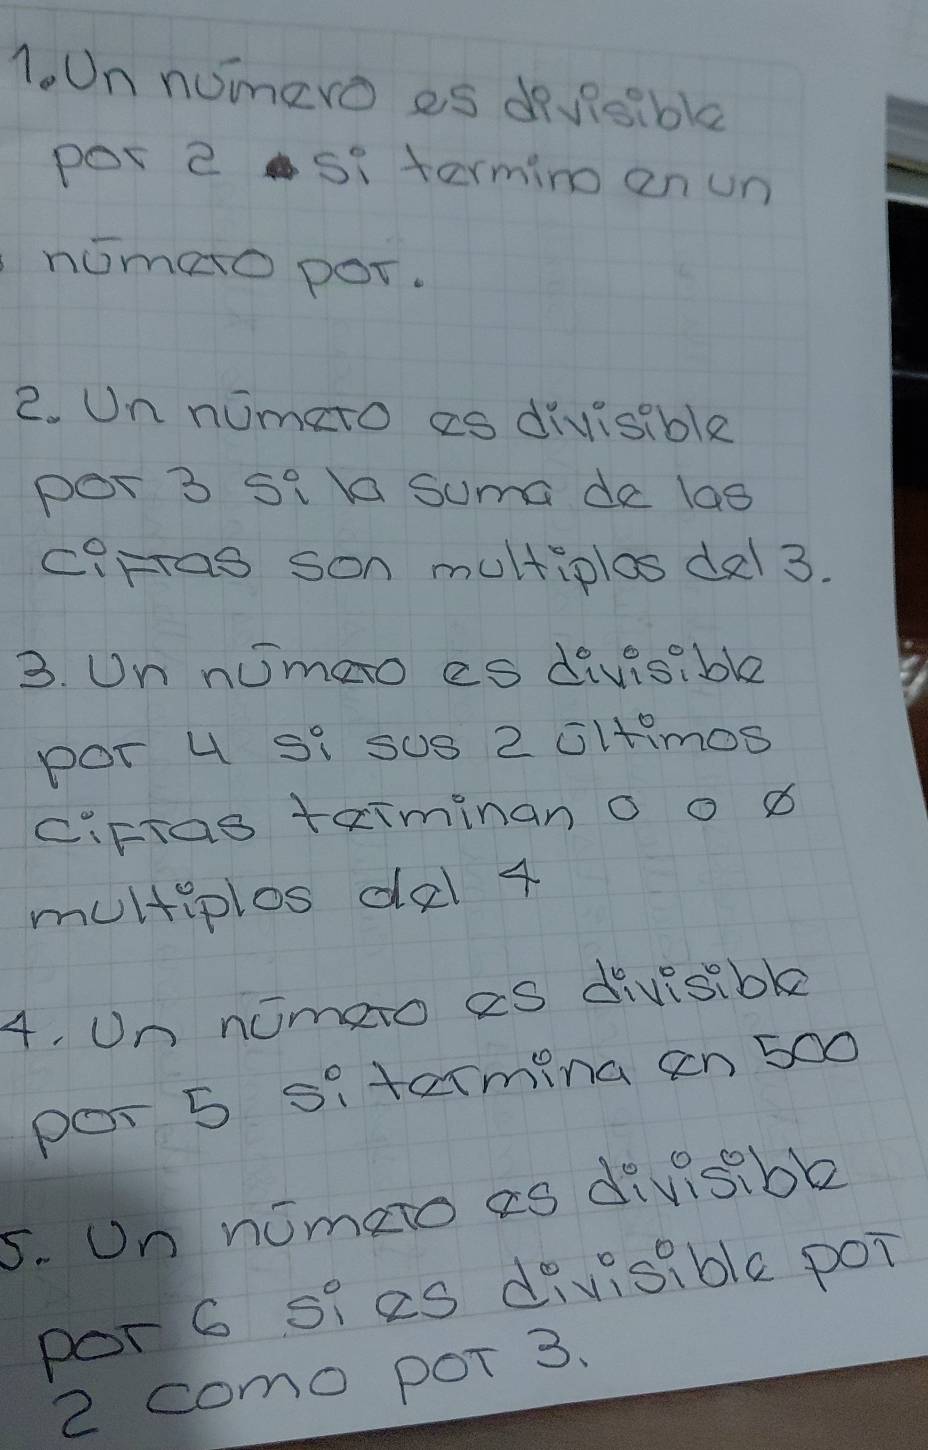 1. Un número es divisible
por 2 si termino en un
número por.
2. Un número es divisible
por 3 si la suma de las
cifras son multiplos del 3.
3. Un númeo es divisible
por 4 si sus 2 últimos
cifras terminan o o 0
multiplos del 4
4. Un número es divisible
por 5 si termina en 5 o 0
5. Un número es divisible
por 6 si es divisible por
2 como por 3.